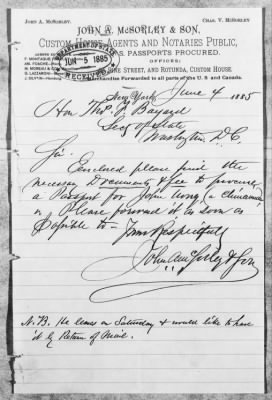 JOHN A. McSORLEY. CHAS. V. McSORLEY
JOHN A. McSORLEY & SON,
CUSTOM HOUSE AGENTS AND NOTARIES PUBLIC,
PASSPORTS PROCURED.
OFFICES:
STREET, AND ROTUNDA, CUSTOM HOUSE
Merchandise Forwarded to all parts of the U. S. and Canada.
DEPARTMENT OF STATE
JUN 5 1885
RECEIVED
New York June 4 1885
Hon Thos. F. Bayard
Secy of State
Washington D.C.
Sir
Enclosed please find the
necessary Documents & fee to procure
a Passport for John Wong, a Chinaman
Please forward it as soon as
Possible to— Yours Respectfully
John A McSorley & Son
N.B. He leaves on Saturday & would like to have
it by Return of Mail.